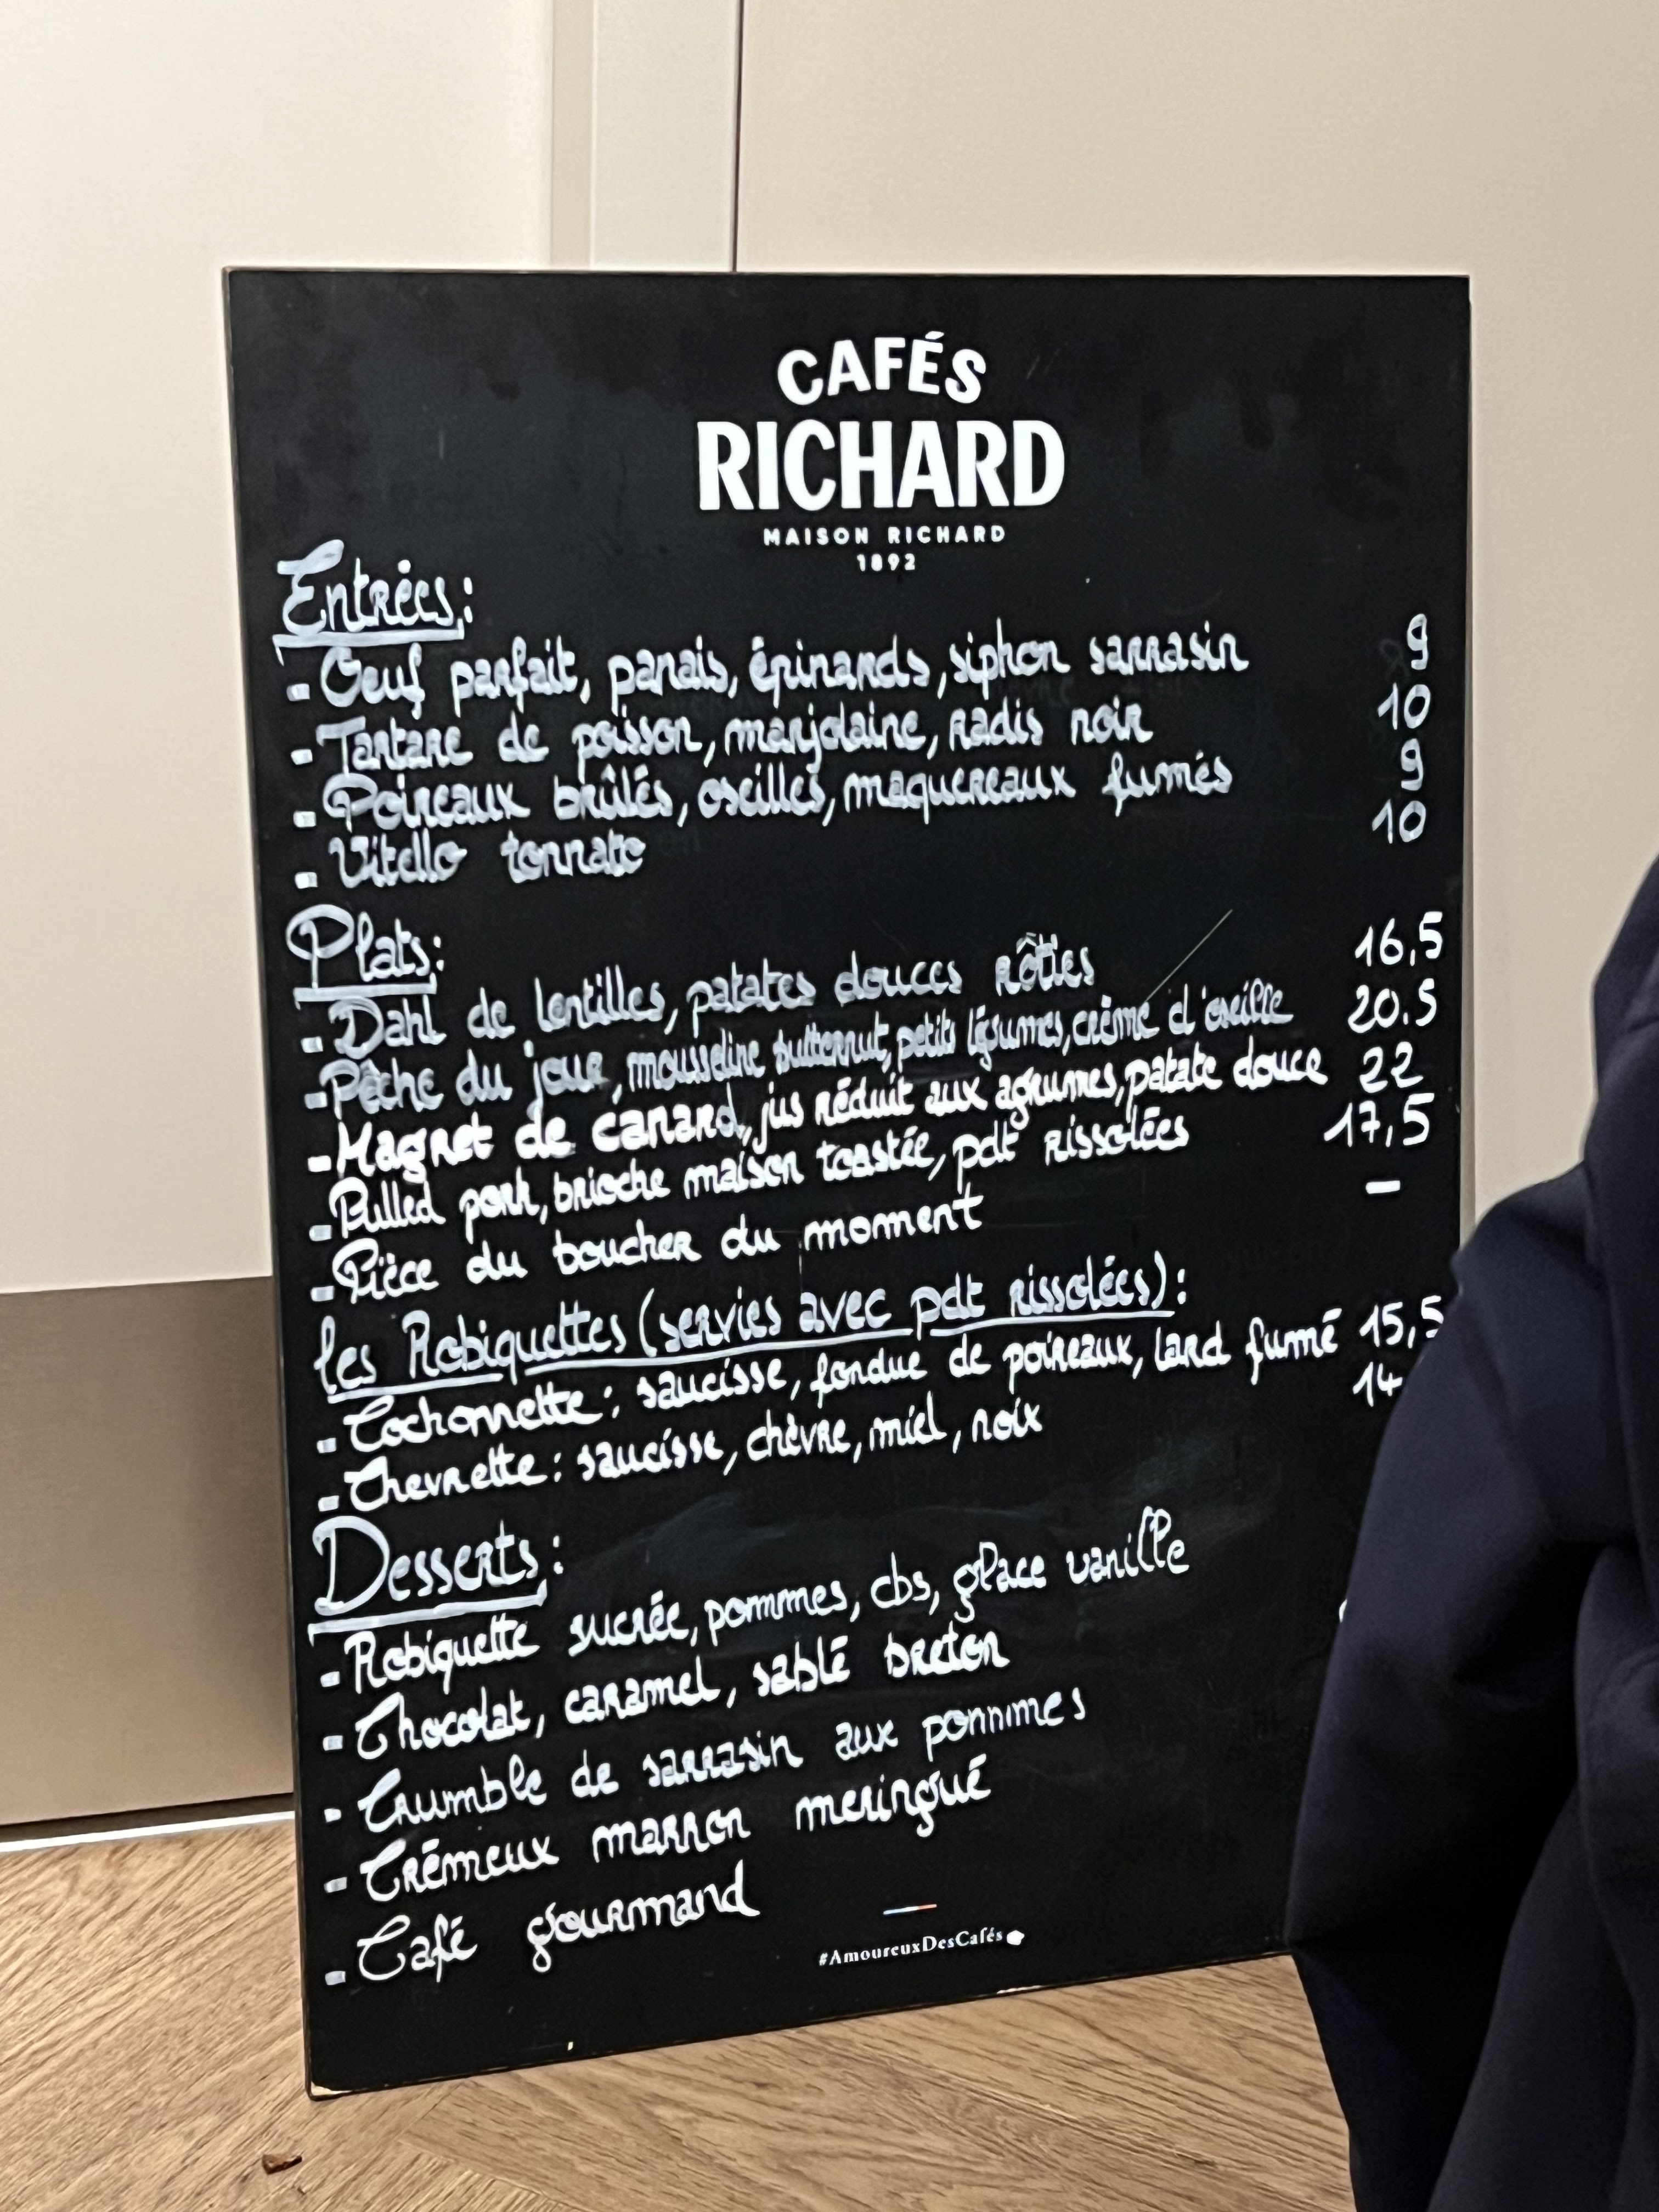 CAFÉS
RICHARD
MAISON RICHARD
1892
Entrées:
- Oeuf parfait, panais, épinards, siphon sarrasin 9
- Tartare de poisson, marjolaine, radis noir 10
- Poireaux brûlés, oseilles, maquereaux fumés 9
- Vitello tonnato 10
Plats:
- Dahl de lentilles, patates douces rôties 16,5
- Pêche du jour, mousseline butternut, petits légumes, crème d'oseille 20.5
- Magret de canard, jus réduit aux agrumes, patate douce 22
- Pulled pork, brioche maison toastée, pdt rissolées 17,5
- Pièce du boucher du moment -
les Robiquettes (servies avec pdt rissolées):
- Cochonnette: saucisse, fondue de poireaux, lard fumé 15,5
- Chevrette: saucisse, chèvre, miel, noix 14
Desserts:
- Robiquette sucrée, pommes, cbs, glace vanille
- Chocolat, caramel, sablé breton
- Crumble de sarrasin aux pommes
- Crémeux marron meringué
- Café gourmand
#AmoureuxDesCafés